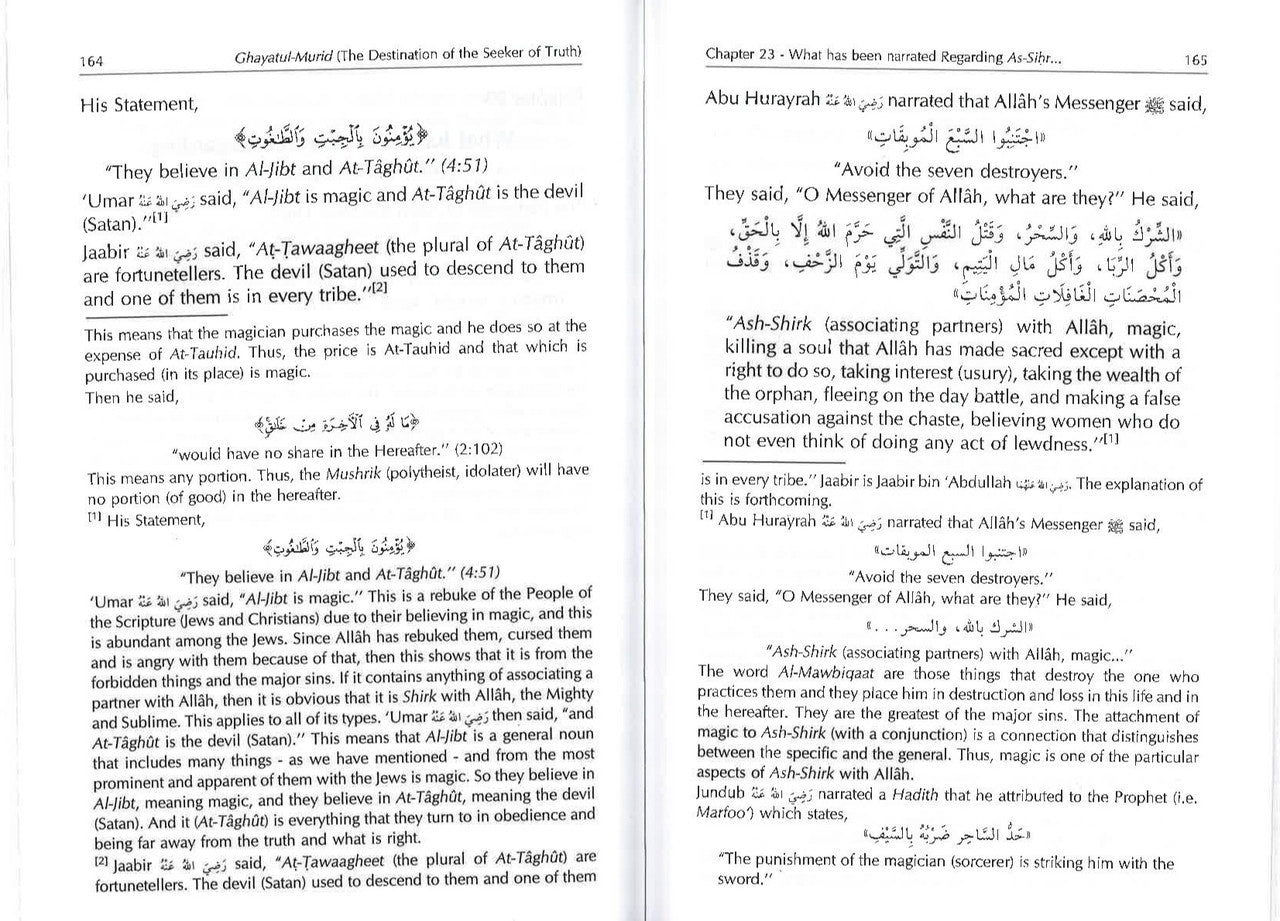 164
Ghayatul-Murid (The Destination of the Seeker of Truth)
His Statement,
﴿يُؤْمِنُونَ بِالْجِبْتِ وَالطَّاغُوتِ﴾
“They believe in Al-Jibt and At-Tâghût.” (4:51)
‘Umar رَضِيَ اللهُ عَنْهُ said, “Al-Jibt is magic and At-Tâghût is the devil
(Satan).”[1]
Jaabir رَضِيَ اللهُ عَنْهُ said, “Aṭ-Ṭawaagheet (the plural of At-Tâghût)
are fortunetellers. The devil (Satan) used to descend to them
and one of them is in every tribe.”[2]
This means that the magician purchases the magic and he does so at the
expense of At-Tauhid. Thus, the price is At-Tauhid and that which is
purchased (in its place) is magic.
Then he said,
﴿مَا لَهُ فِي الْآخِرَةِ مِنْ خَلَاقٍ﴾
“would have no share in the Hereafter.” (2:102)
This means any portion. Thus, the Mushrik (polytheist, idolater) will have
no portion (of good) in the hereafter.
[1] His Statement,
﴿يُؤْمِنُونَ بِالْجِبْتِ وَالطَّاغُوتِ﴾
“They believe in Al-Jibt and At-Tâghût.” (4:51)
‘Umar رَضِيَ اللهُ عَنْهُ said, “Al-Jibt is magic.” This is a rebuke of the People of
the Scripture (Jews and Christians) due to their believing in magic, and this
is abundant among the Jews. Since Allâh has rebuked them, cursed them
and is angry with them because of that, then this shows that it is from the
forbidden things and the major sins. If it contains anything of associating a
partner with Allâh, then it is obvious that it is Shirk with Allâh, the Mighty
and Sublime. This applies to all of its types. ‘Umar رَضِيَ اللهُ عَنْهُ then said, “and
At-Tâghût is the devil (Satan).” This means that Al-Jibt is a general noun
that includes many things - as we have mentioned - and from the most
prominent and apparent of them with the Jews is magic. So they believe in
Al-Jibt, meaning magic, and they believe in At-Tâghût, meaning the devil
(Satan). And it (At-Tâghût) is everything that they turn to in obedience and
being far away from the truth and what is right.
[2] Jaabir رَضِيَ اللهُ عَنْهُ said, “Aṭ-Ṭawaagheet (the plural of At-Tâghût) are
fortunetellers. The devil (Satan) used to descend to them and one of them
Chapter 23 - What has been narrated Regarding As-Siḥr...
165
Abu Hurayrah رَضِيَ اللهُ عَنْهُ narrated that Allâh’s Messenger ﷺ said,
«اجْتَنِبُوا السَّبْعَ الْمُوبِقَاتِ»
“Avoid the seven destroyers.”
They said, “O Messenger of Allâh, what are they?” He said,
«الشِّرْكُ بِاللهِ، وَالسِّحْرُ، وَقَتْلُ النَّفْسِ الَّتِي حَرَّمَ اللهُ إِلَّا بِالْحَقِّ،
وَأَكْلُ الرِّبَا، وَأَكْلُ مَالِ الْيَتِيمِ، وَالتَّوَلِّي يَوْمَ الزَّحْفِ، وَقَذْفُ
الْمُحْصَنَاتِ الْغَافِلَاتِ الْمُؤْمِنَاتِ»
“Ash-Shirk (associating partners) with Allâh, magic,
killing a soul that Allâh has made sacred except with a
right to do so, taking interest (usury), taking the wealth of
the orphan, fleeing on the day battle, and making a false
accusation against the chaste, believing women who do
not even think of doing any act of lewdness.”[1]
is in every tribe.” Jaabir is Jaabir bin ‘Abdullah رَضِيَ اللهُ عَنْهُمَا. The explanation of
this is forthcoming.
[1] Abu Hurayrah رَضِيَ اللهُ عَنْهُ narrated that Allâh’s Messenger ﷺ said,
«اجتنبوا السبع الموبقات»
“Avoid the seven destroyers.”
They said, “O Messenger of Allâh, what are they?” He said,
«الشرك بالله، والسحر...»
“Ash-Shirk (associating partners) with Allâh, magic...”
The word Al-Mawbiqaat are those things that destroy the one who
practices them and they place him in destruction and loss in this life and in
the hereafter. They are the greatest of the major sins. The attachment of
magic to Ash-Shirk (with a conjunction) is a connection that distinguishes
between the specific and the general. Thus, magic is one of the particular
aspects of Ash-Shirk with Allâh.
Jundub رَضِيَ اللهُ عَنْهُ narrated a Hadith that he attributed to the Prophet (i.e.
Marfoo‘) which states,
«حَدُّ السَّاحِرِ ضَرْبُهُ بِالسَّيْفِ»
“The punishment of the magician (sorcerer) is striking him with the
sword.”